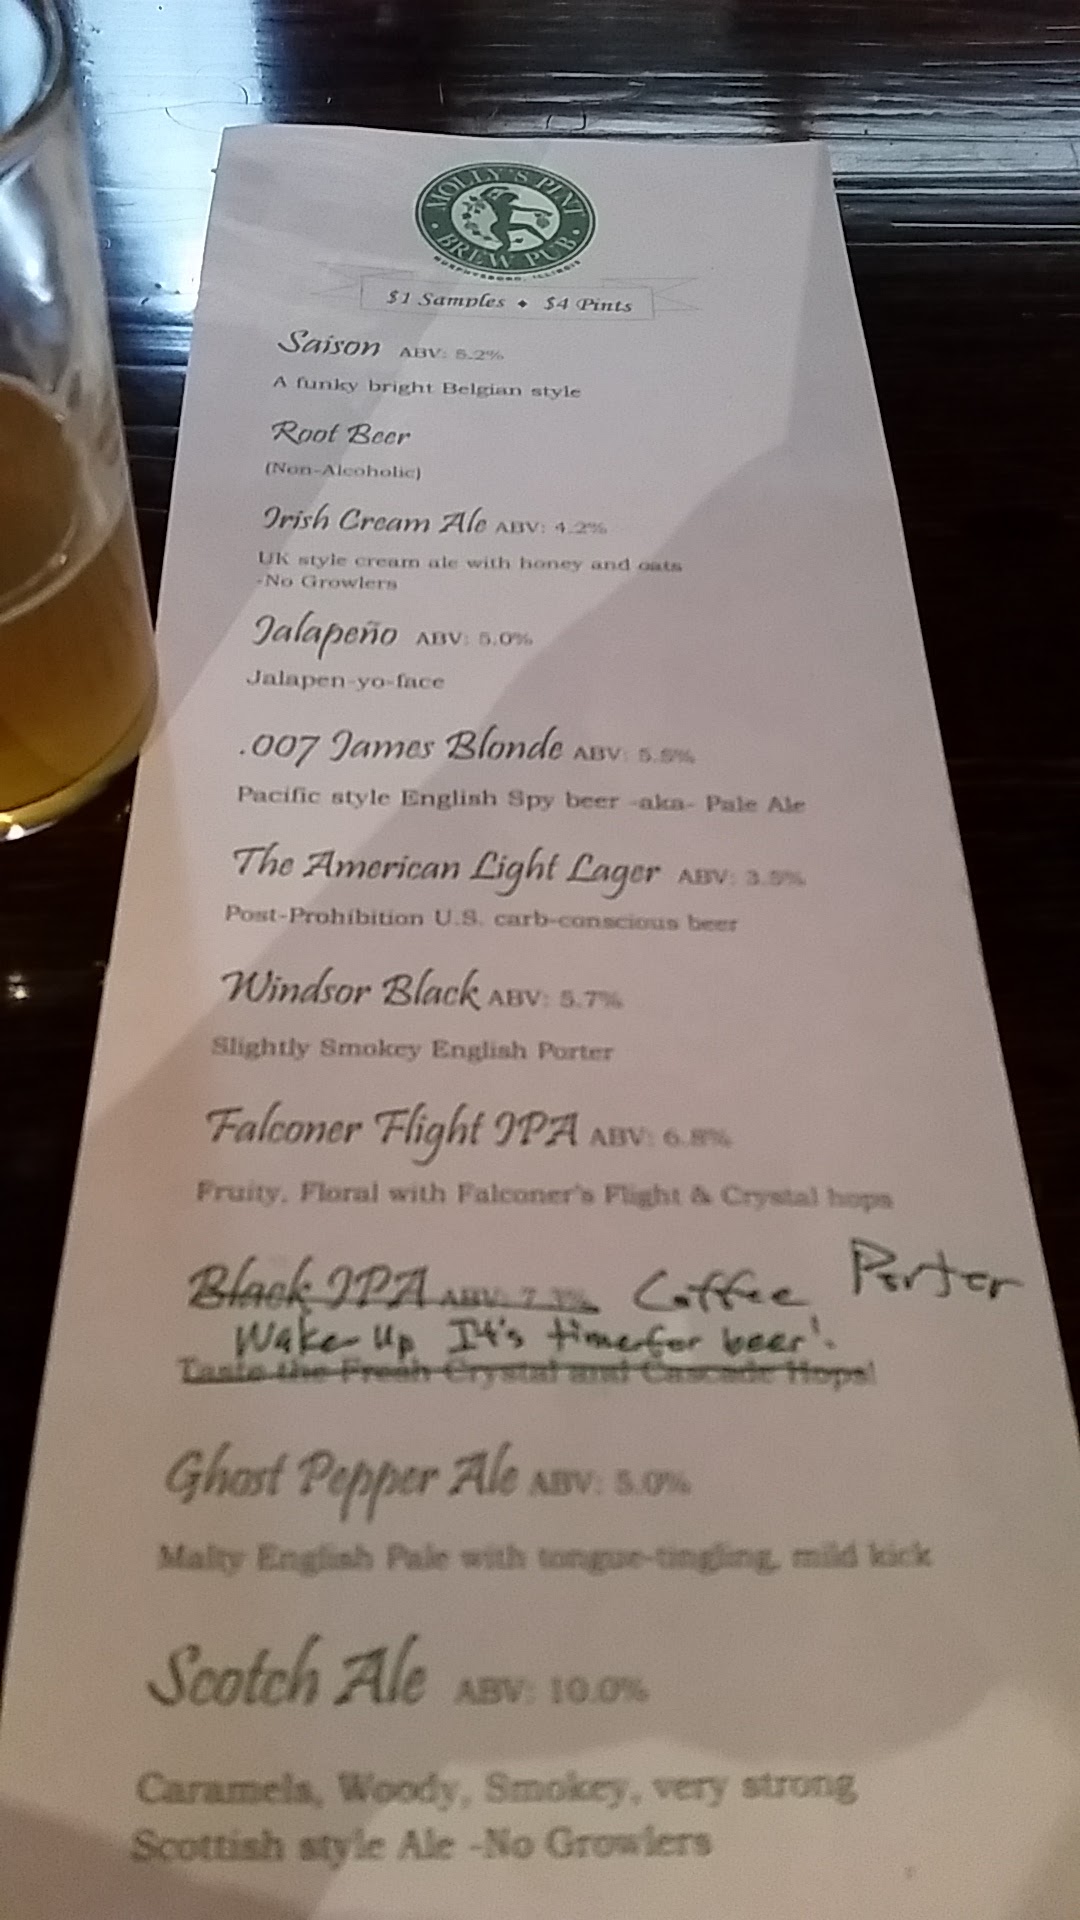 MOLLY'S PINT
BREW PUB
MURPHYSBORO, ILLINOIS
$1 Samples ◆ $4 Pints
Saison ABV: 5.2%
A funky bright Belgian style
Root Beer
(Non-Alcoholic)
Irish Cream Ale ABV: 4.2%
UK style cream ale with honey and oats
-No Growlers
Jalapeño ABV: 5.0%
Jalapen-yo-face
.007 James Blonde ABV: 5.5%
Pacific style English Spy beer -aka- Pale Ale
The American Light Lager ABV: 3.5%
Post-Prohibition U.S. carb-conscious beer
Windsor Black ABV: 5.7%
Slightly Smokey English Porter
Falconer Flight IPA ABV: 6.8%
Fruity, Floral with Falconer's Flight & Crystal hops
Black IPA ABV: 7.3% Coffee Porter
Wake Up It's time for beer!
Taste the Fresh Crystal and Cascade Hops!
Ghost Pepper Ale ABV: 5.0%
Malty English Pale with tongue-tingling, mild kick
Scotch Ale ABV: 10.0%
Caramels, Woody, Smokey, very strong
Scottish style Ale -No Growlers